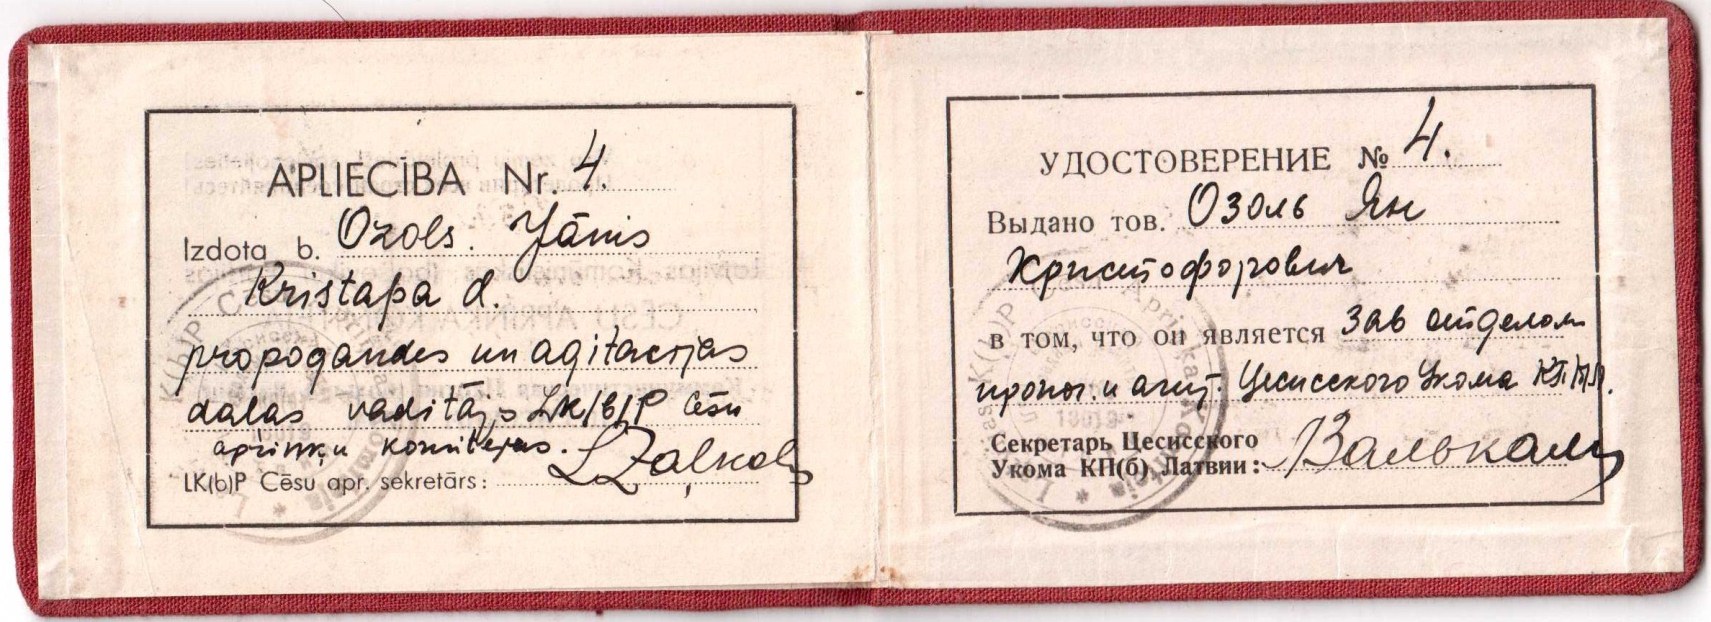 APLIECĪBA Nr. 4.
Izdota b. Ozols. Jānis
Kristapa d.
propogandes un agitacijas
daļas vadītājs LK/b/P Cēsu
apriņķu komitejas.
LK(b)P Cēsu apr. sekretārs:
УДОСТОВЕРЕНИЕ № 4.
Выдано тов. Озоль Ян
Христофорович
в том, что он является зав отделом
проп. и агит. Цесисского Укома
Секретарь Цесисского
Укома КП(б) Латвии: Валькалн